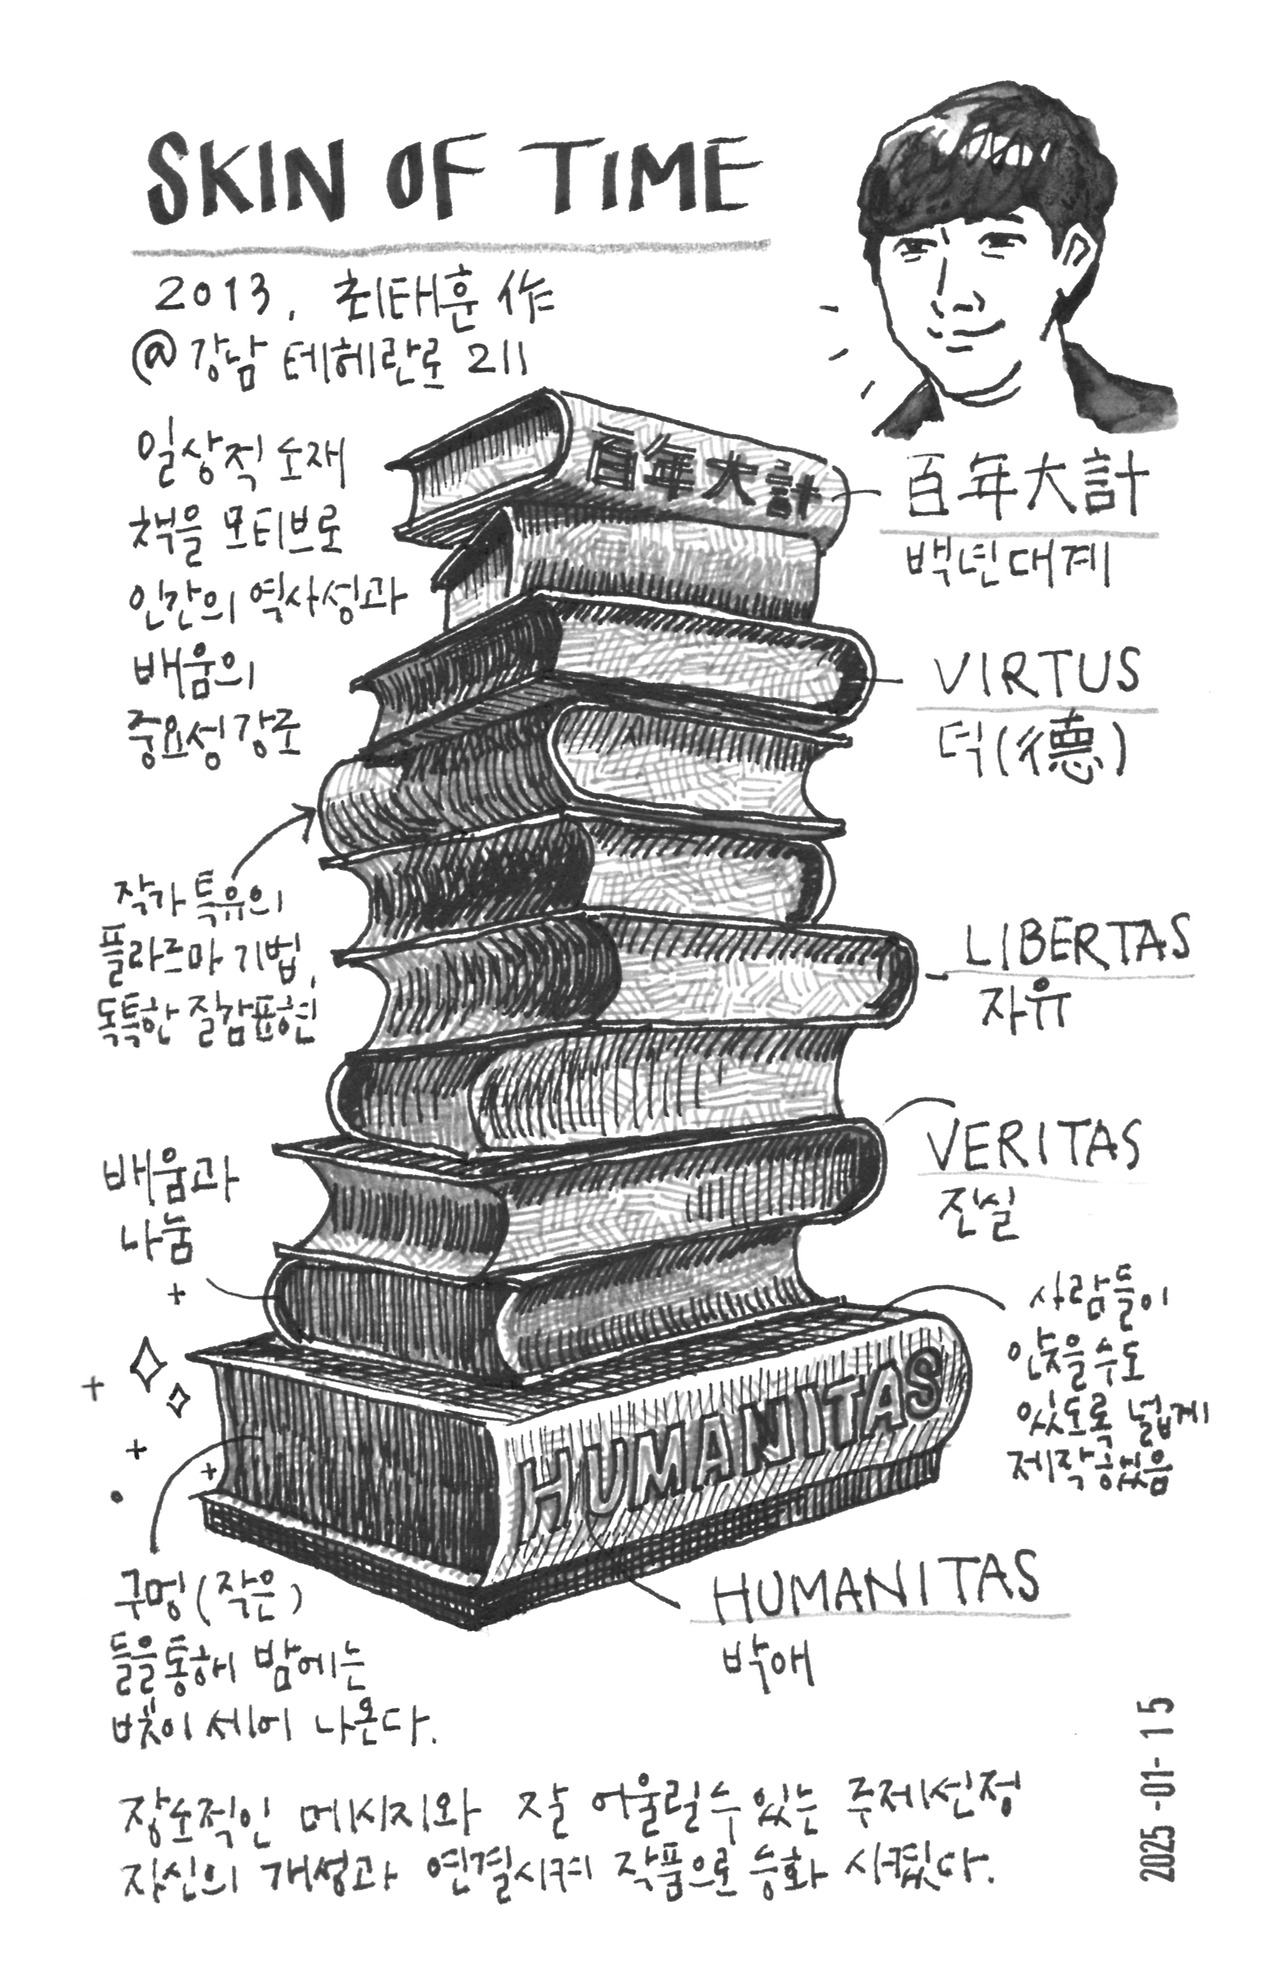 SKIN OF TIME
2013, 최태훈 作
@강남 테헤란로 211
일상적 소재
책을 모티브로
인간의 역사성과
배움의
중요성 강조
百年大計
百年大計
백년대계
VIRTUS
덕(德)
작가 특유의
플라즈마 기법,
독특한 질감표현
LIBERTAS
자유
VERITAS
진실
배움과
나눔
사람들이
앉을수도
있도록 넓게
제작했음
HUMANITAS
HUMANITAS
박애
구멍(작은)
들을통해 밤에는
빛이 세어 나온다.
장소적인 메시지와 잘 어울릴수있는 주제선정
자신의 개성과 연결시켜 작품으로 승화 시켰다.
2025-01-15